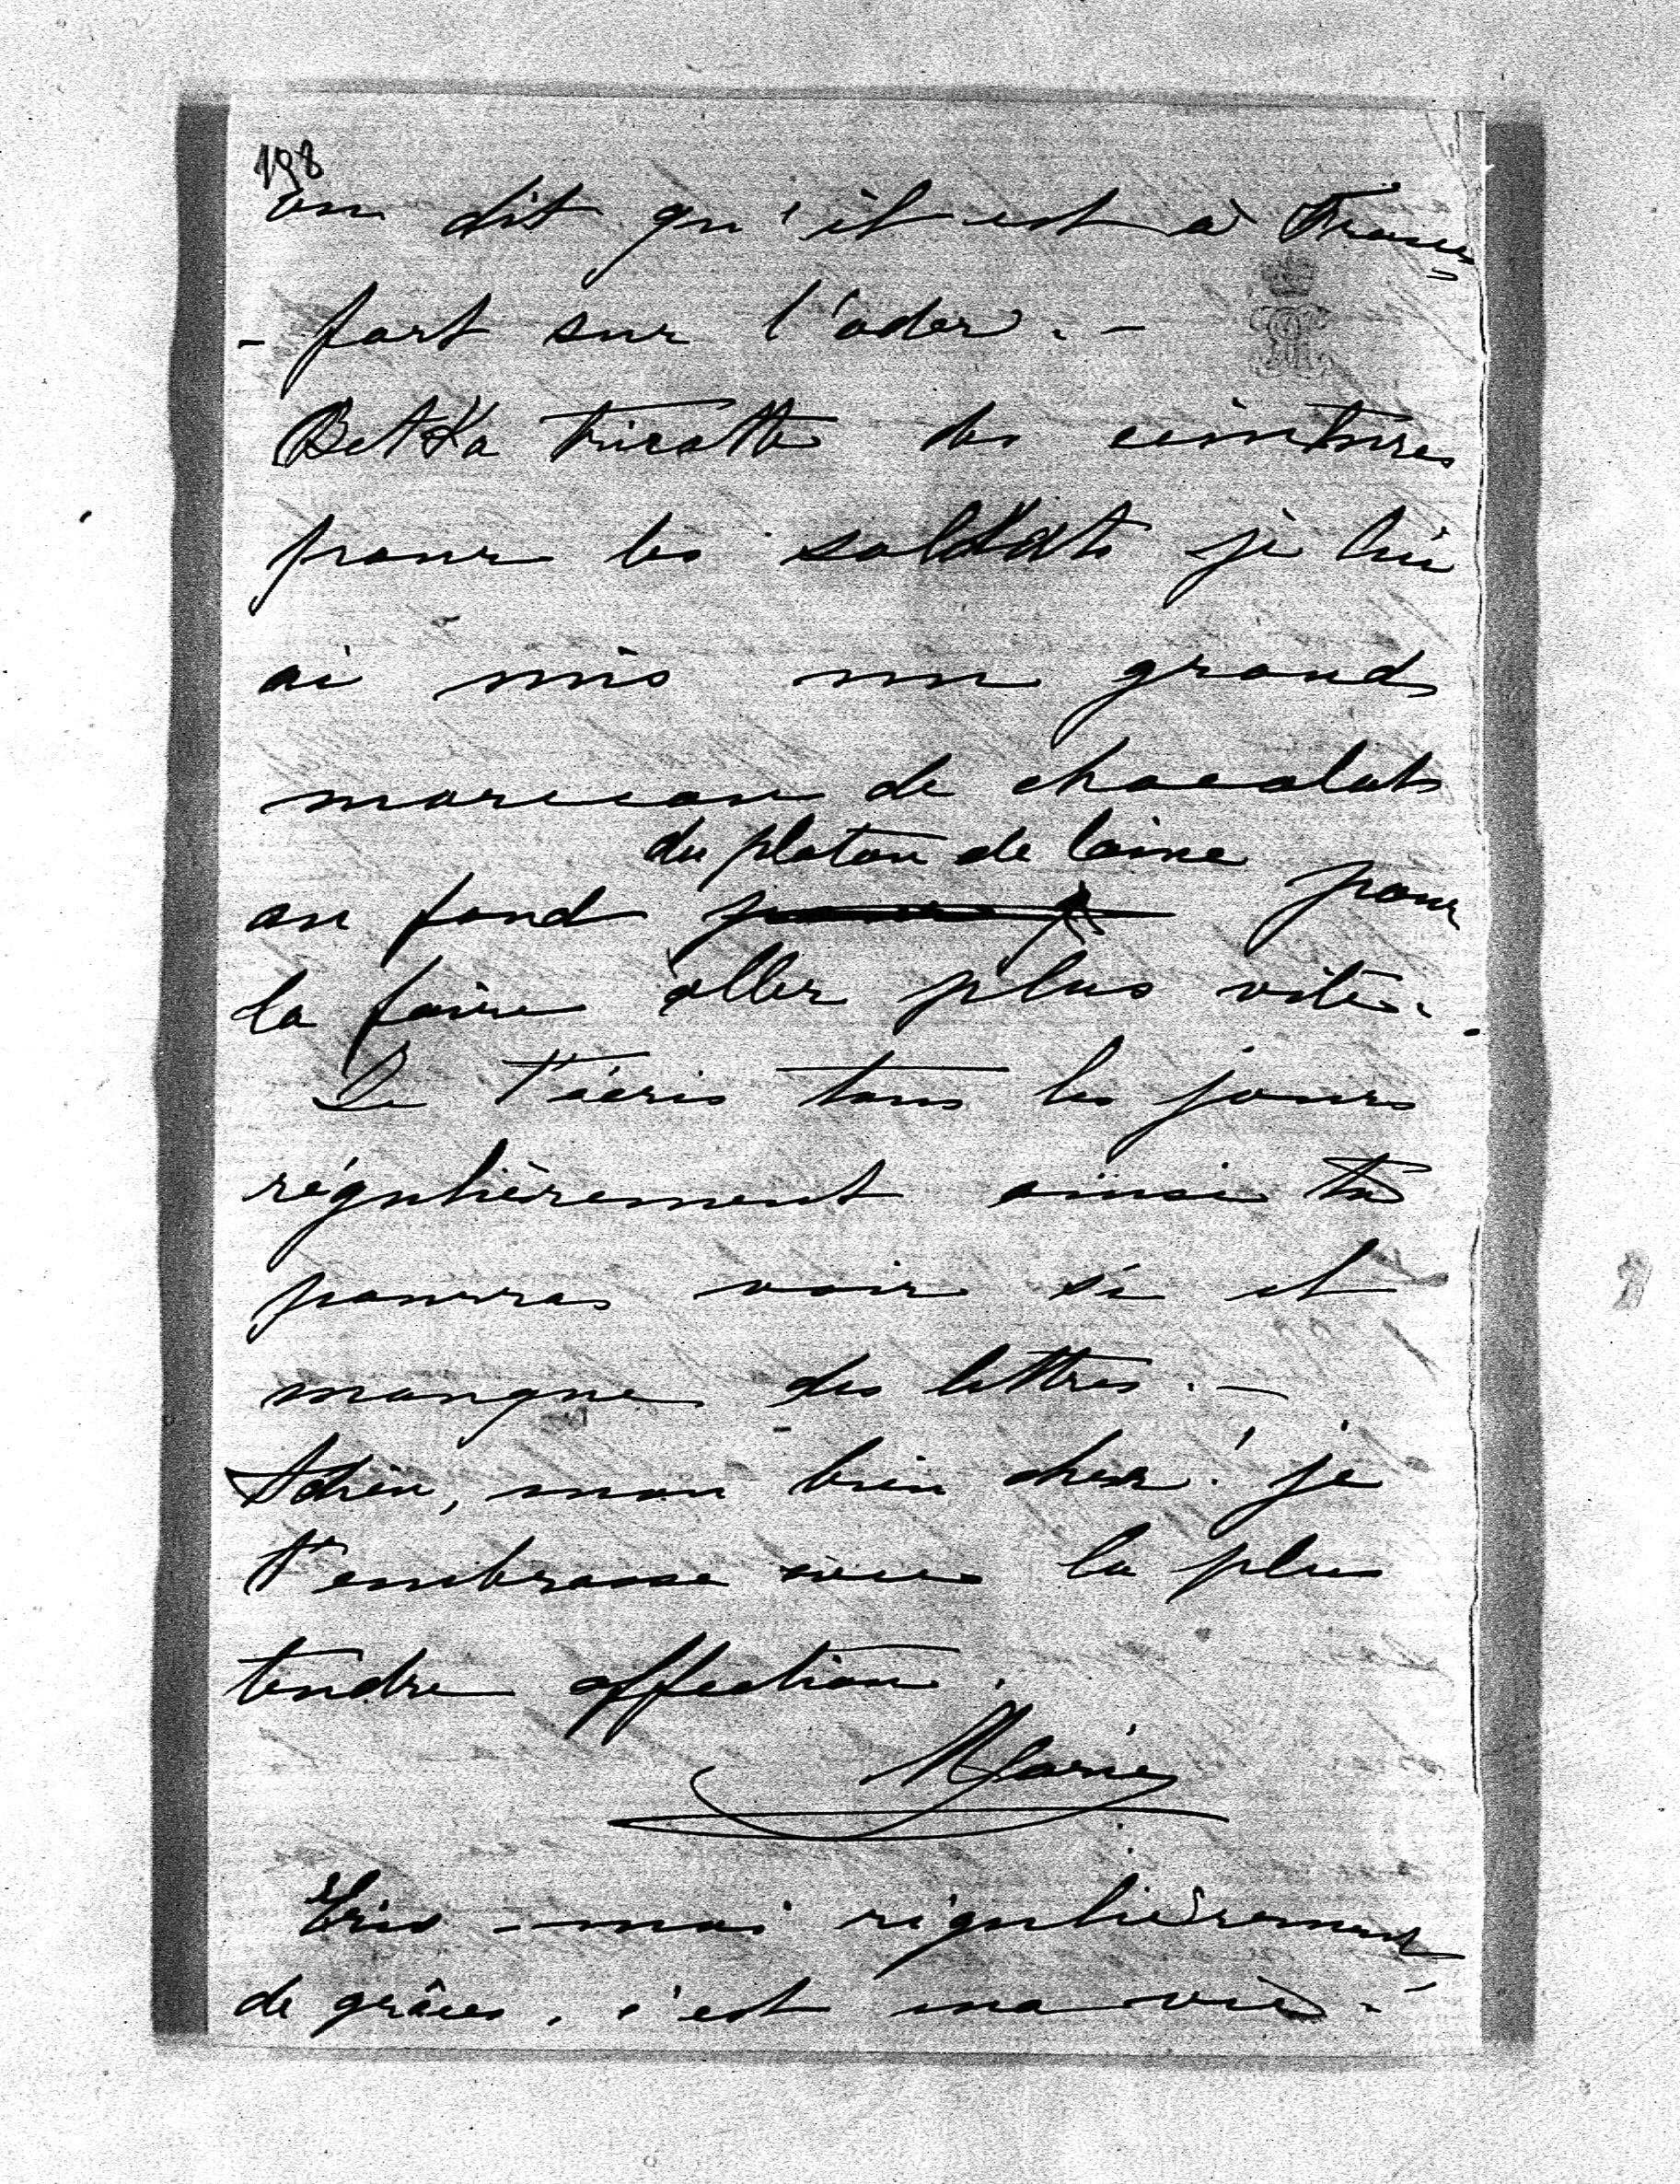 198
on dit qu'il est à Franc=
-fort sur l'oder. -
Betka tricotte des ceintures
pour les soldats je lui
ai mis un grand
morceau de chocolat
du ploton de laine
au fond pour
la faire aller plus vite.
Je t'écris tous les jours
régulièrement ainsi tu
pourras voir si il
manque des lettres. -
Adieu, mon bien cher! je
t'embrasse avec la plus
tendre affection.
Marie
Ecris-moi régulièrement
de grâces, c'est ma vie. -